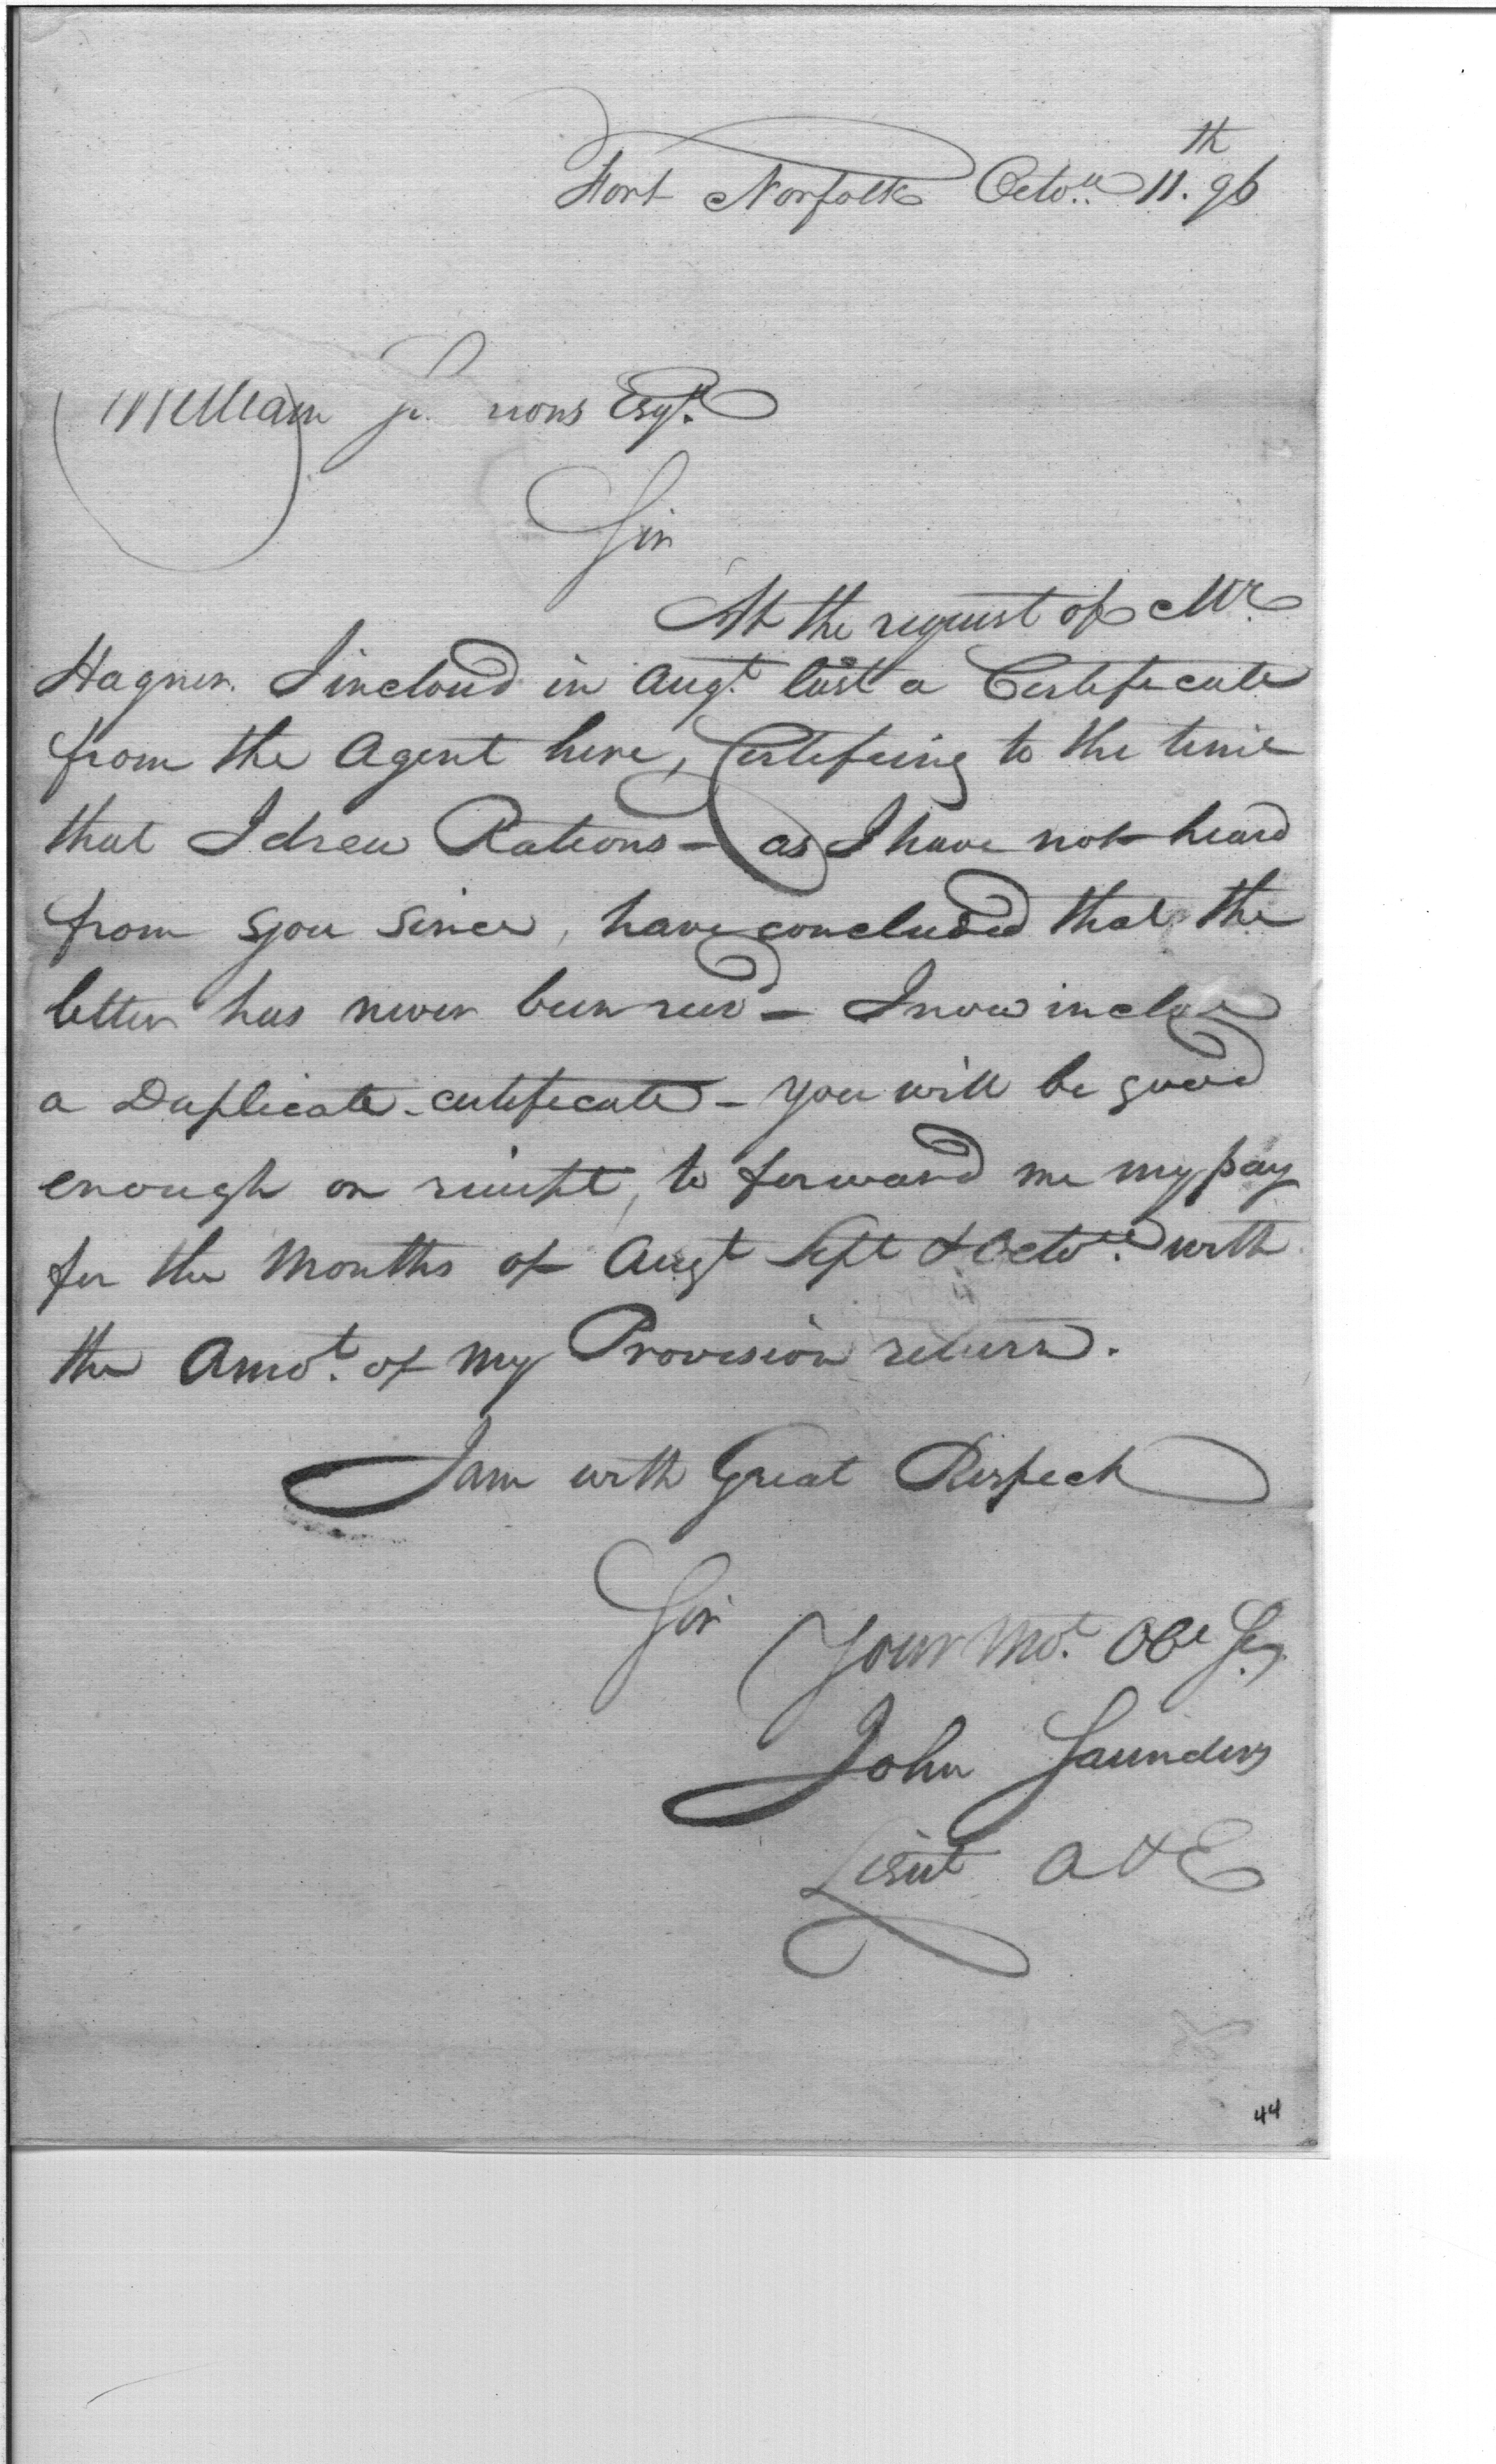 Fort Norfolk Octo.er 11.th 96
William mons Esqr.
Sir
At the request of Mr.
Hagner. I incloud in Augt. last a Certificate
from the Agent here, Certifeing to the time
that I drew Rations – as I have not heard
from you since, have concluded that the
letter has never been recd – I now inclose
a Duplicate certificate – you will be good
enough on receipt, to forward me my pay
for the Months of Augt Sept & Octo.er with
the Amot. of my Provision return.
I am with Great Respect
Sir
Your Mot. Obe Se
John Saunders
Lieut A & E
44